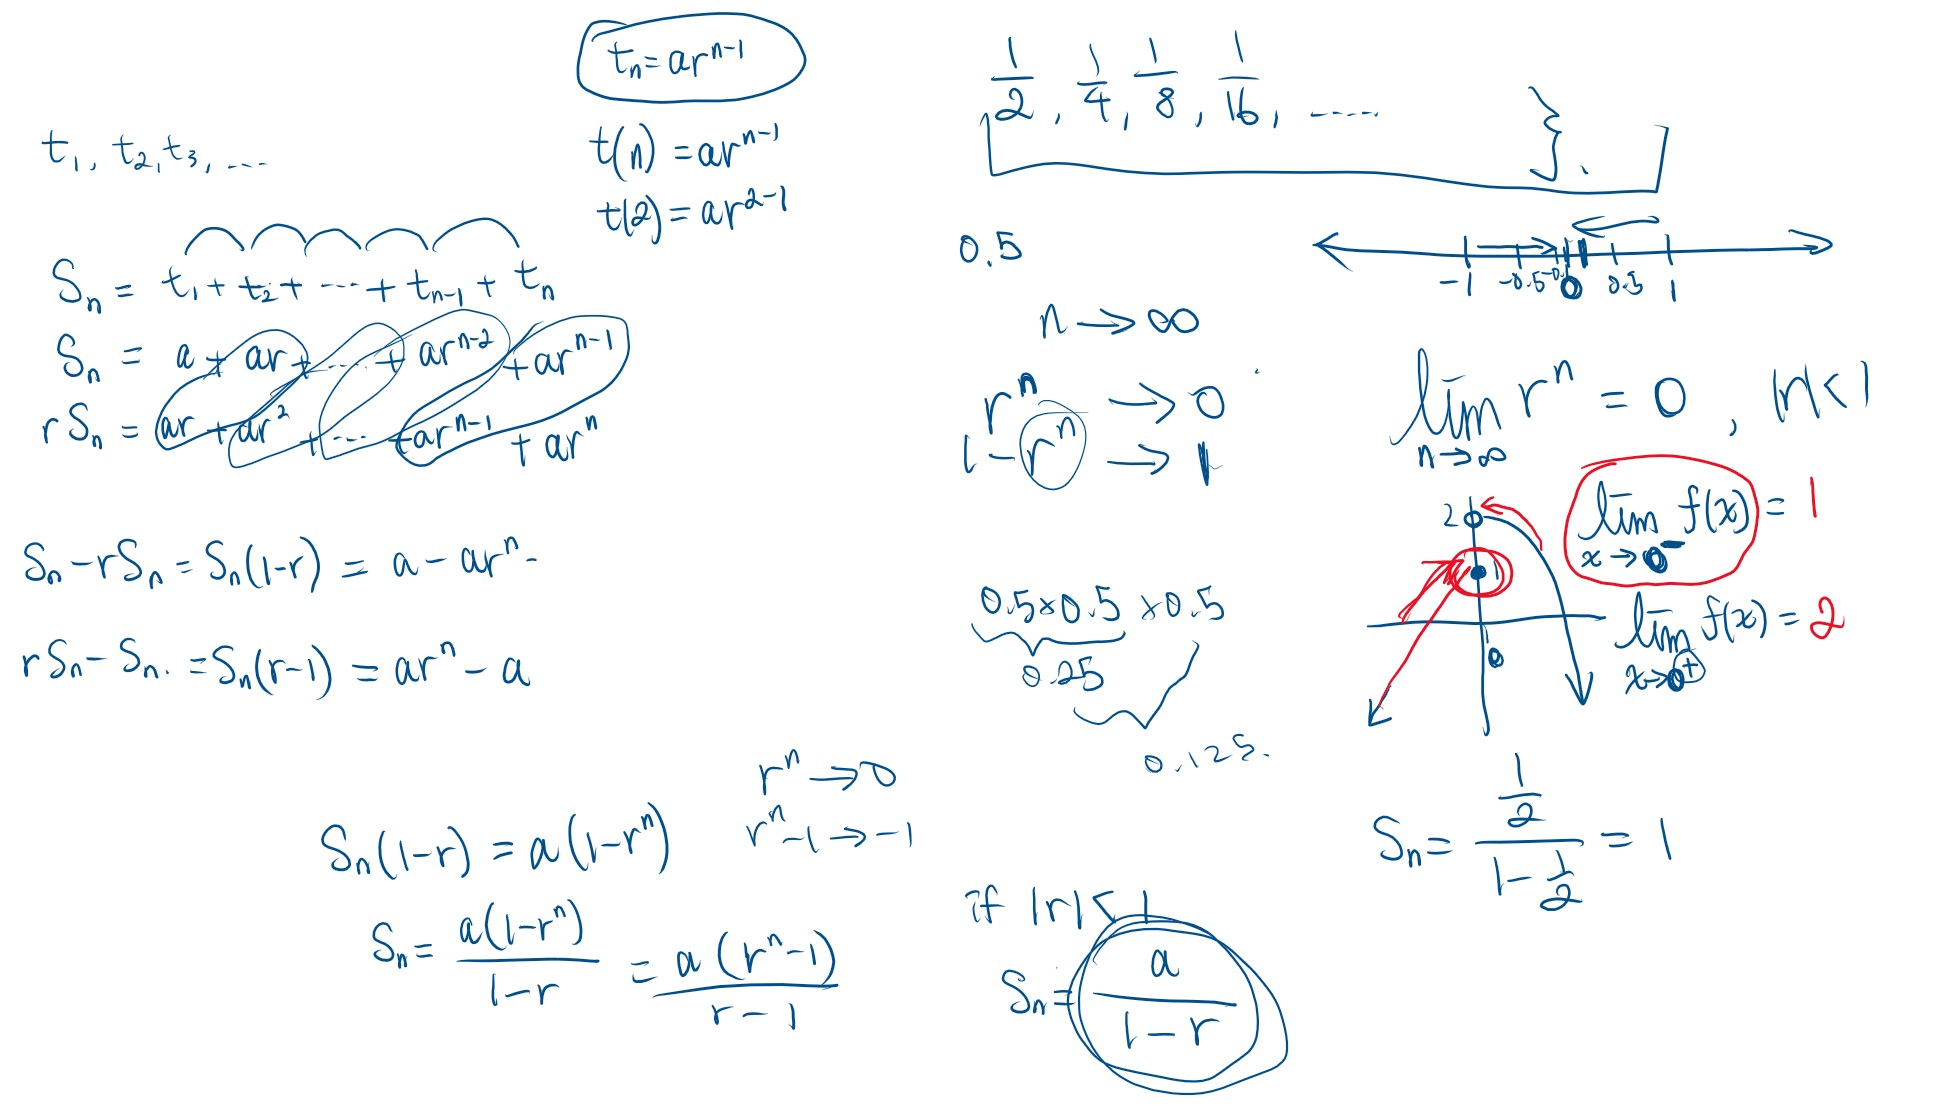 tₙ = arⁿ⁻¹
t₁, t₂, t₃, ....
t(n) = arⁿ⁻¹
t(2) = ar²⁻¹
Sₙ = t₁ + t₂ + .... + tₙ₋₁ + tₙ
Sₙ = a + ar + .... + arⁿ⁻² + arⁿ⁻¹
rSₙ = ar + ar² + .... + arⁿ⁻¹ + arⁿ
Sₙ - rSₙ = Sₙ(1-r) = a - arⁿ
rSₙ - Sₙ. = Sₙ(r-1) = arⁿ - a
rⁿ → 0
rⁿ - 1 → -1
Sₙ(1-r) = a(1-rⁿ)
Sₙ = a(1-rⁿ)/(1-r) = a(rⁿ-1)/(r-1)
1/2, 1/4, 1/8, 1/16, ......
0.5
-1 -0.5 -0. 0 0.5 1
n → ∞
rⁿ → 0
1 - rⁿ → 1
lim n→∞ rⁿ = 0, |r| < 1
2
1
0
lim x→0⁻ f(x) = 1
lim x→0⁺ f(x) = 2
0.5×0.5 ×0.5
0.25
0.125.
if |r| < 1
Sₙ = a/(1-r)
Sₙ = (1/2)/(1 - 1/2) = 1